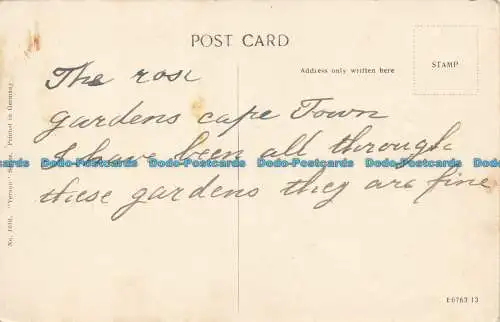 POST CARD
Address only written here
STAMP
The rose
gardens cape Town
I have been all through
these gardens they are fine
Dodo-Postcards Dodo-Postcards Dodo-Postcards Dodo-Postcards
Printed in Germany
E6763 13